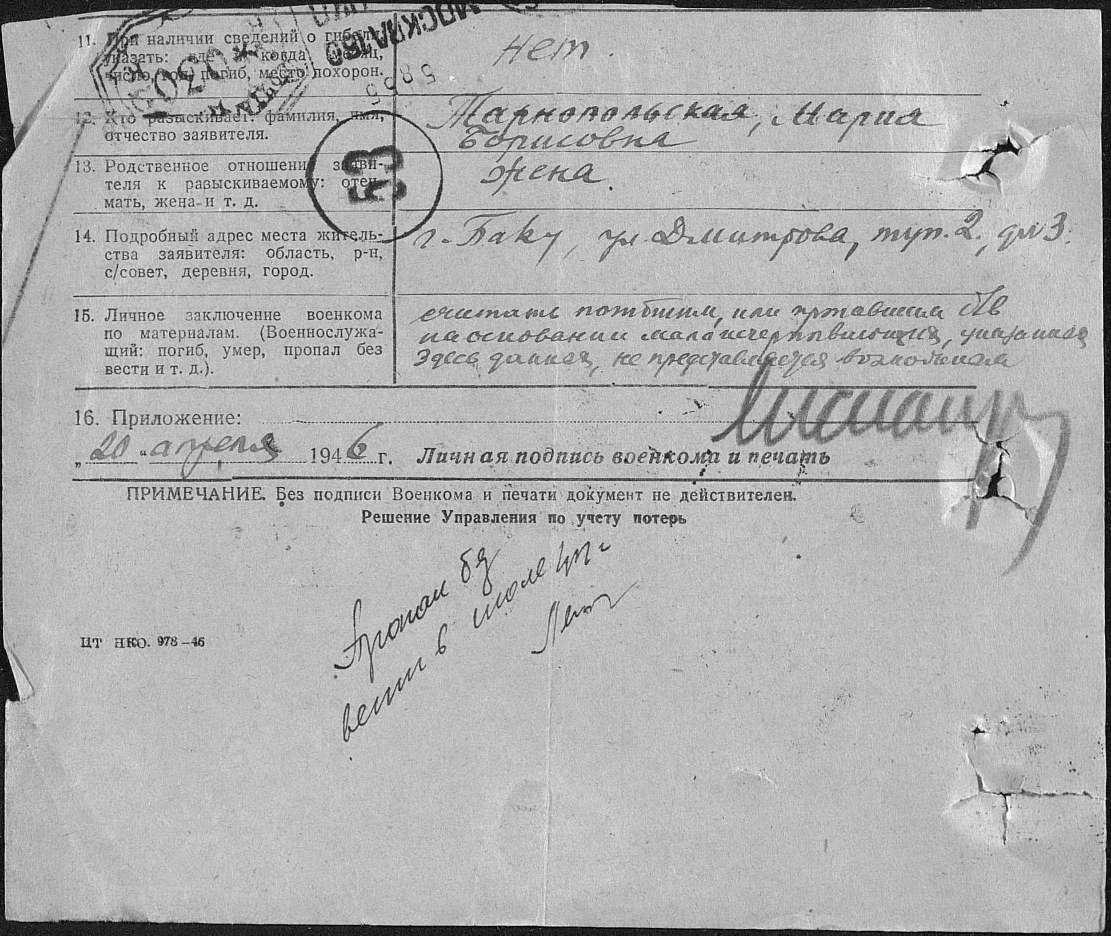 МОСКВА 160
5855
53
11. При наличии сведений о гибели нет.
указать: где и когда (месяц,
число, год) погиб, место похорон.
12. Кто разыскивает: фамилия, имя, Тарнопольская, Мария
отчество заявителя. Борисовна
13. Родственное отношение заяви- жена.
теля к разыскиваемому: отец,
мать, жена и т. д.
14. Подробный адрес места житель- г. Баку, ул. Дмитрова, туп. 2, д. № 3.
ства заявителя: область, р-н,
с/совет, деревня, город.
15. Личное заключение военкома считать погибшим, или пропавшим б/в
по материалам. (Военнослужа- на основании мало исчерпывающих, указанных
щий: погиб, умер, пропал без здесь данных, не представляется возможным
вести и т. д.).
16. Приложение:
„20“ апреля 1946 г. Личная подпись военкома и печать
ПРИМЕЧАНИЕ. Без подписи Военкома и печати документ не действителен.
Решение Управления по учету потерь
Пропал без
вести в июле
ЦТ НКО. 978–46